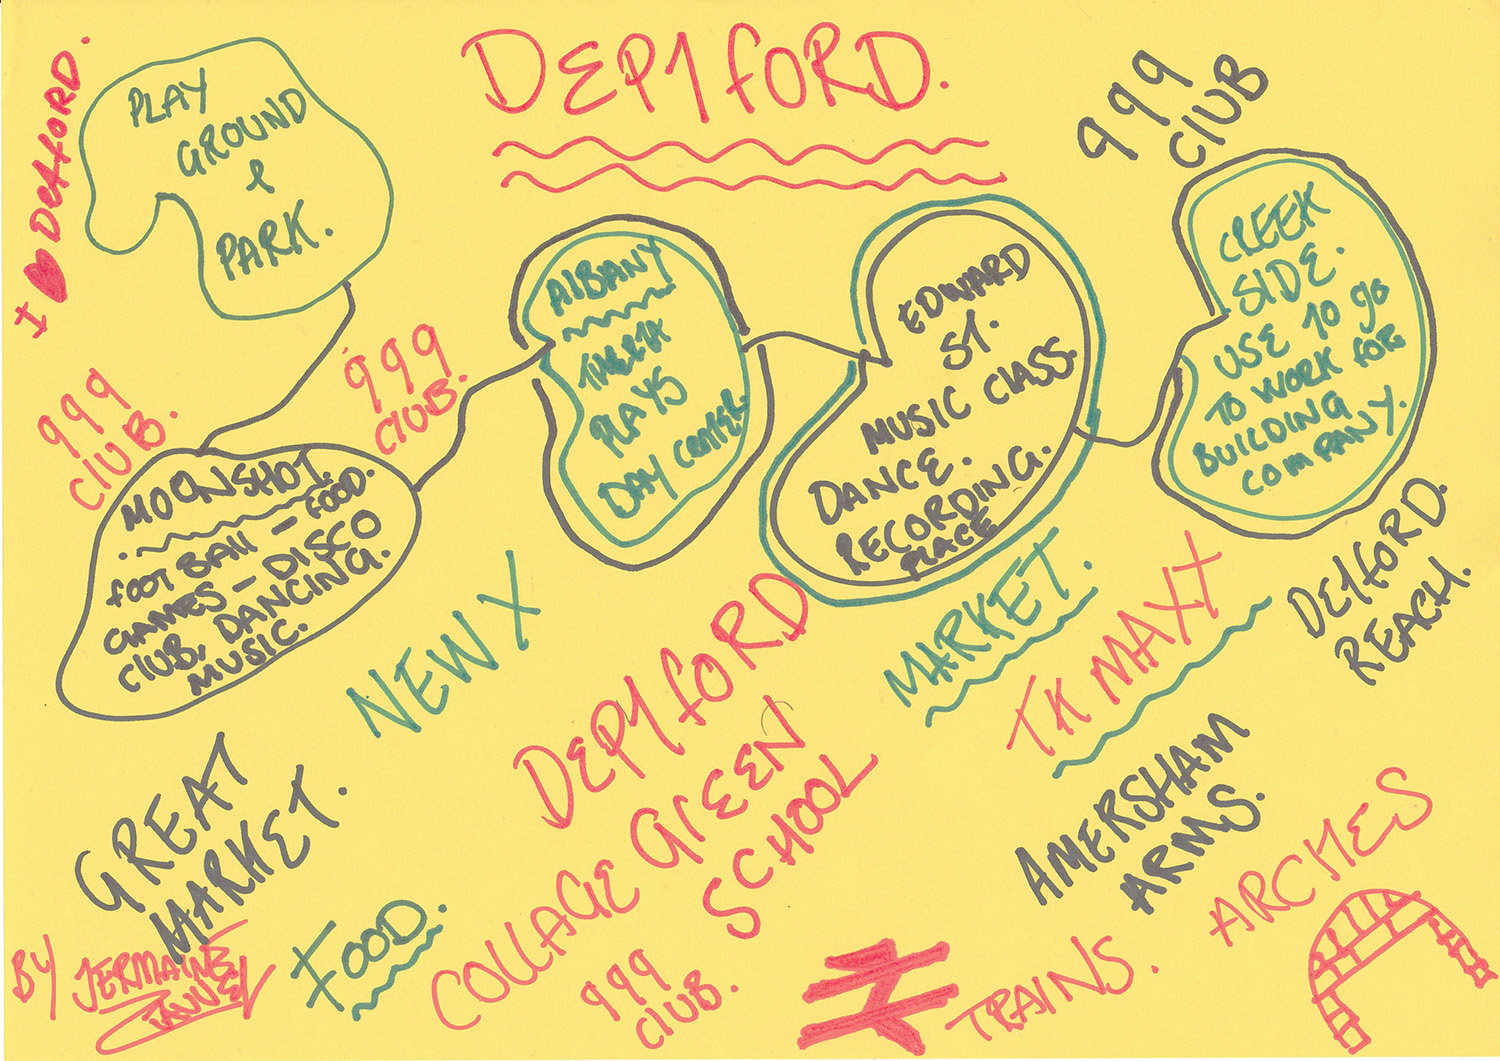 DEP1FORD.
I ♥ DetFORD.
PLAY
GROUND
&
PARK.
999
CLUB
CREEK
SIDE.
USE TO GO
TO WORK FOR
BUILDING
COMPANY.
ALBANY
PLAYS
DAY CENTER.
EDWARD
ST.
MUSIC CLASS.
DANCE.
RECORDING.
PLACE
999
CLUB.
999
CLUB.
MOONSHOT.
FOOT BALL - FOOD.
GAMES - DISCO
CLUB, DANCING.
MUSIC.
NEW X
MARKET.
TK MAXX
DE1FORD
REACH.
GREAT
MARKET.
DEP1FORD
GREEN
SCHOOL
COLLAGE
AMERSHAM
ARMS.
ARCHES
FOOD.
999
CLUB.
TRAINS.
BY JERMAINE